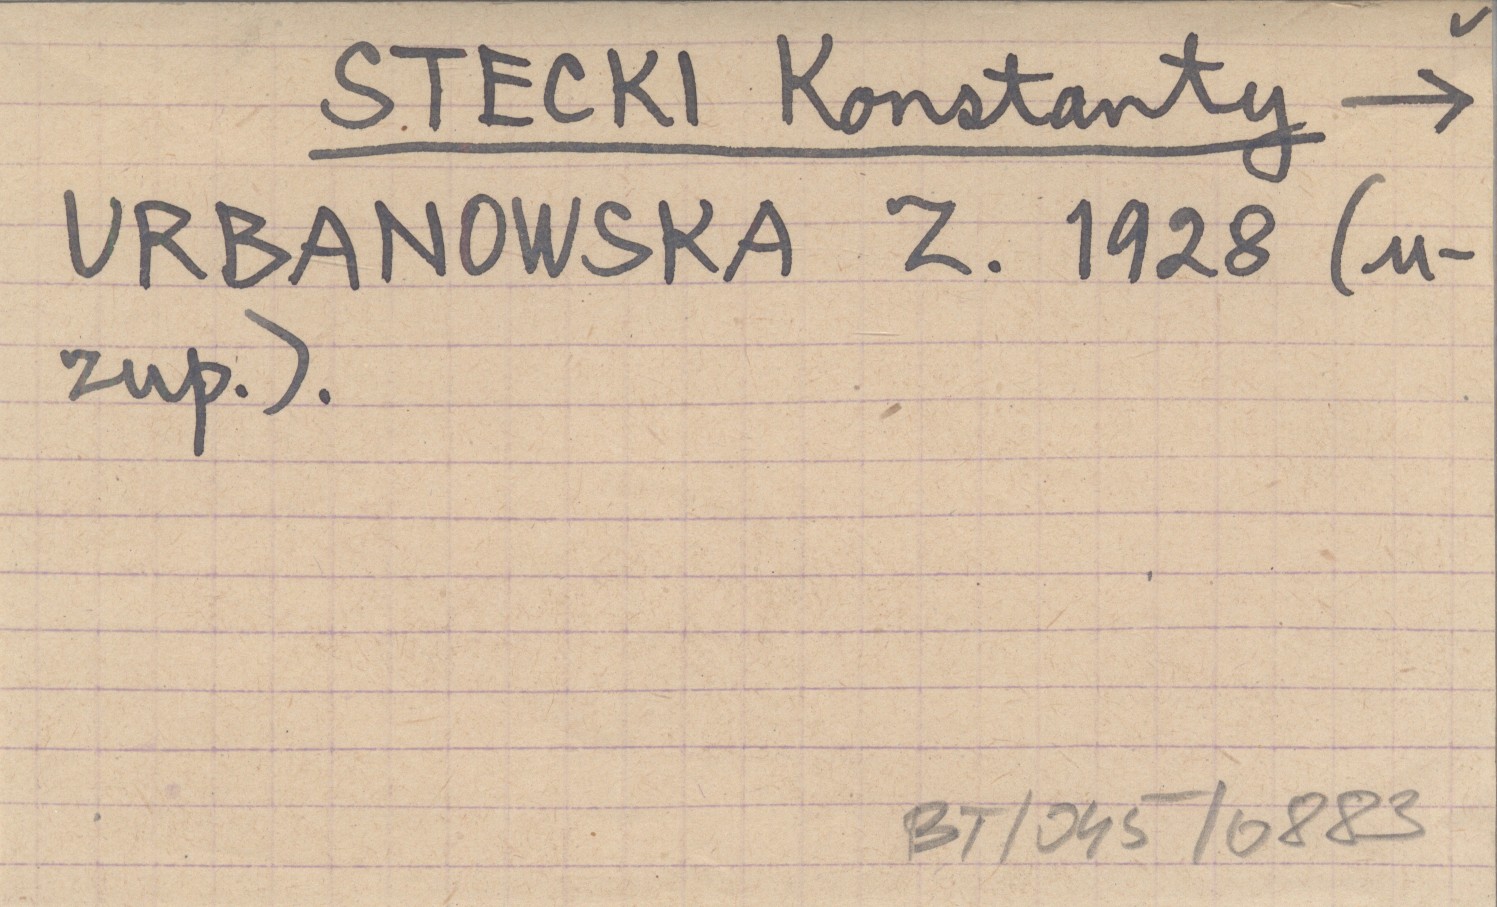 STECKI Konstanty →
URBANOWSKA Z. 1928 (u-
zup.).
BT/045/0883